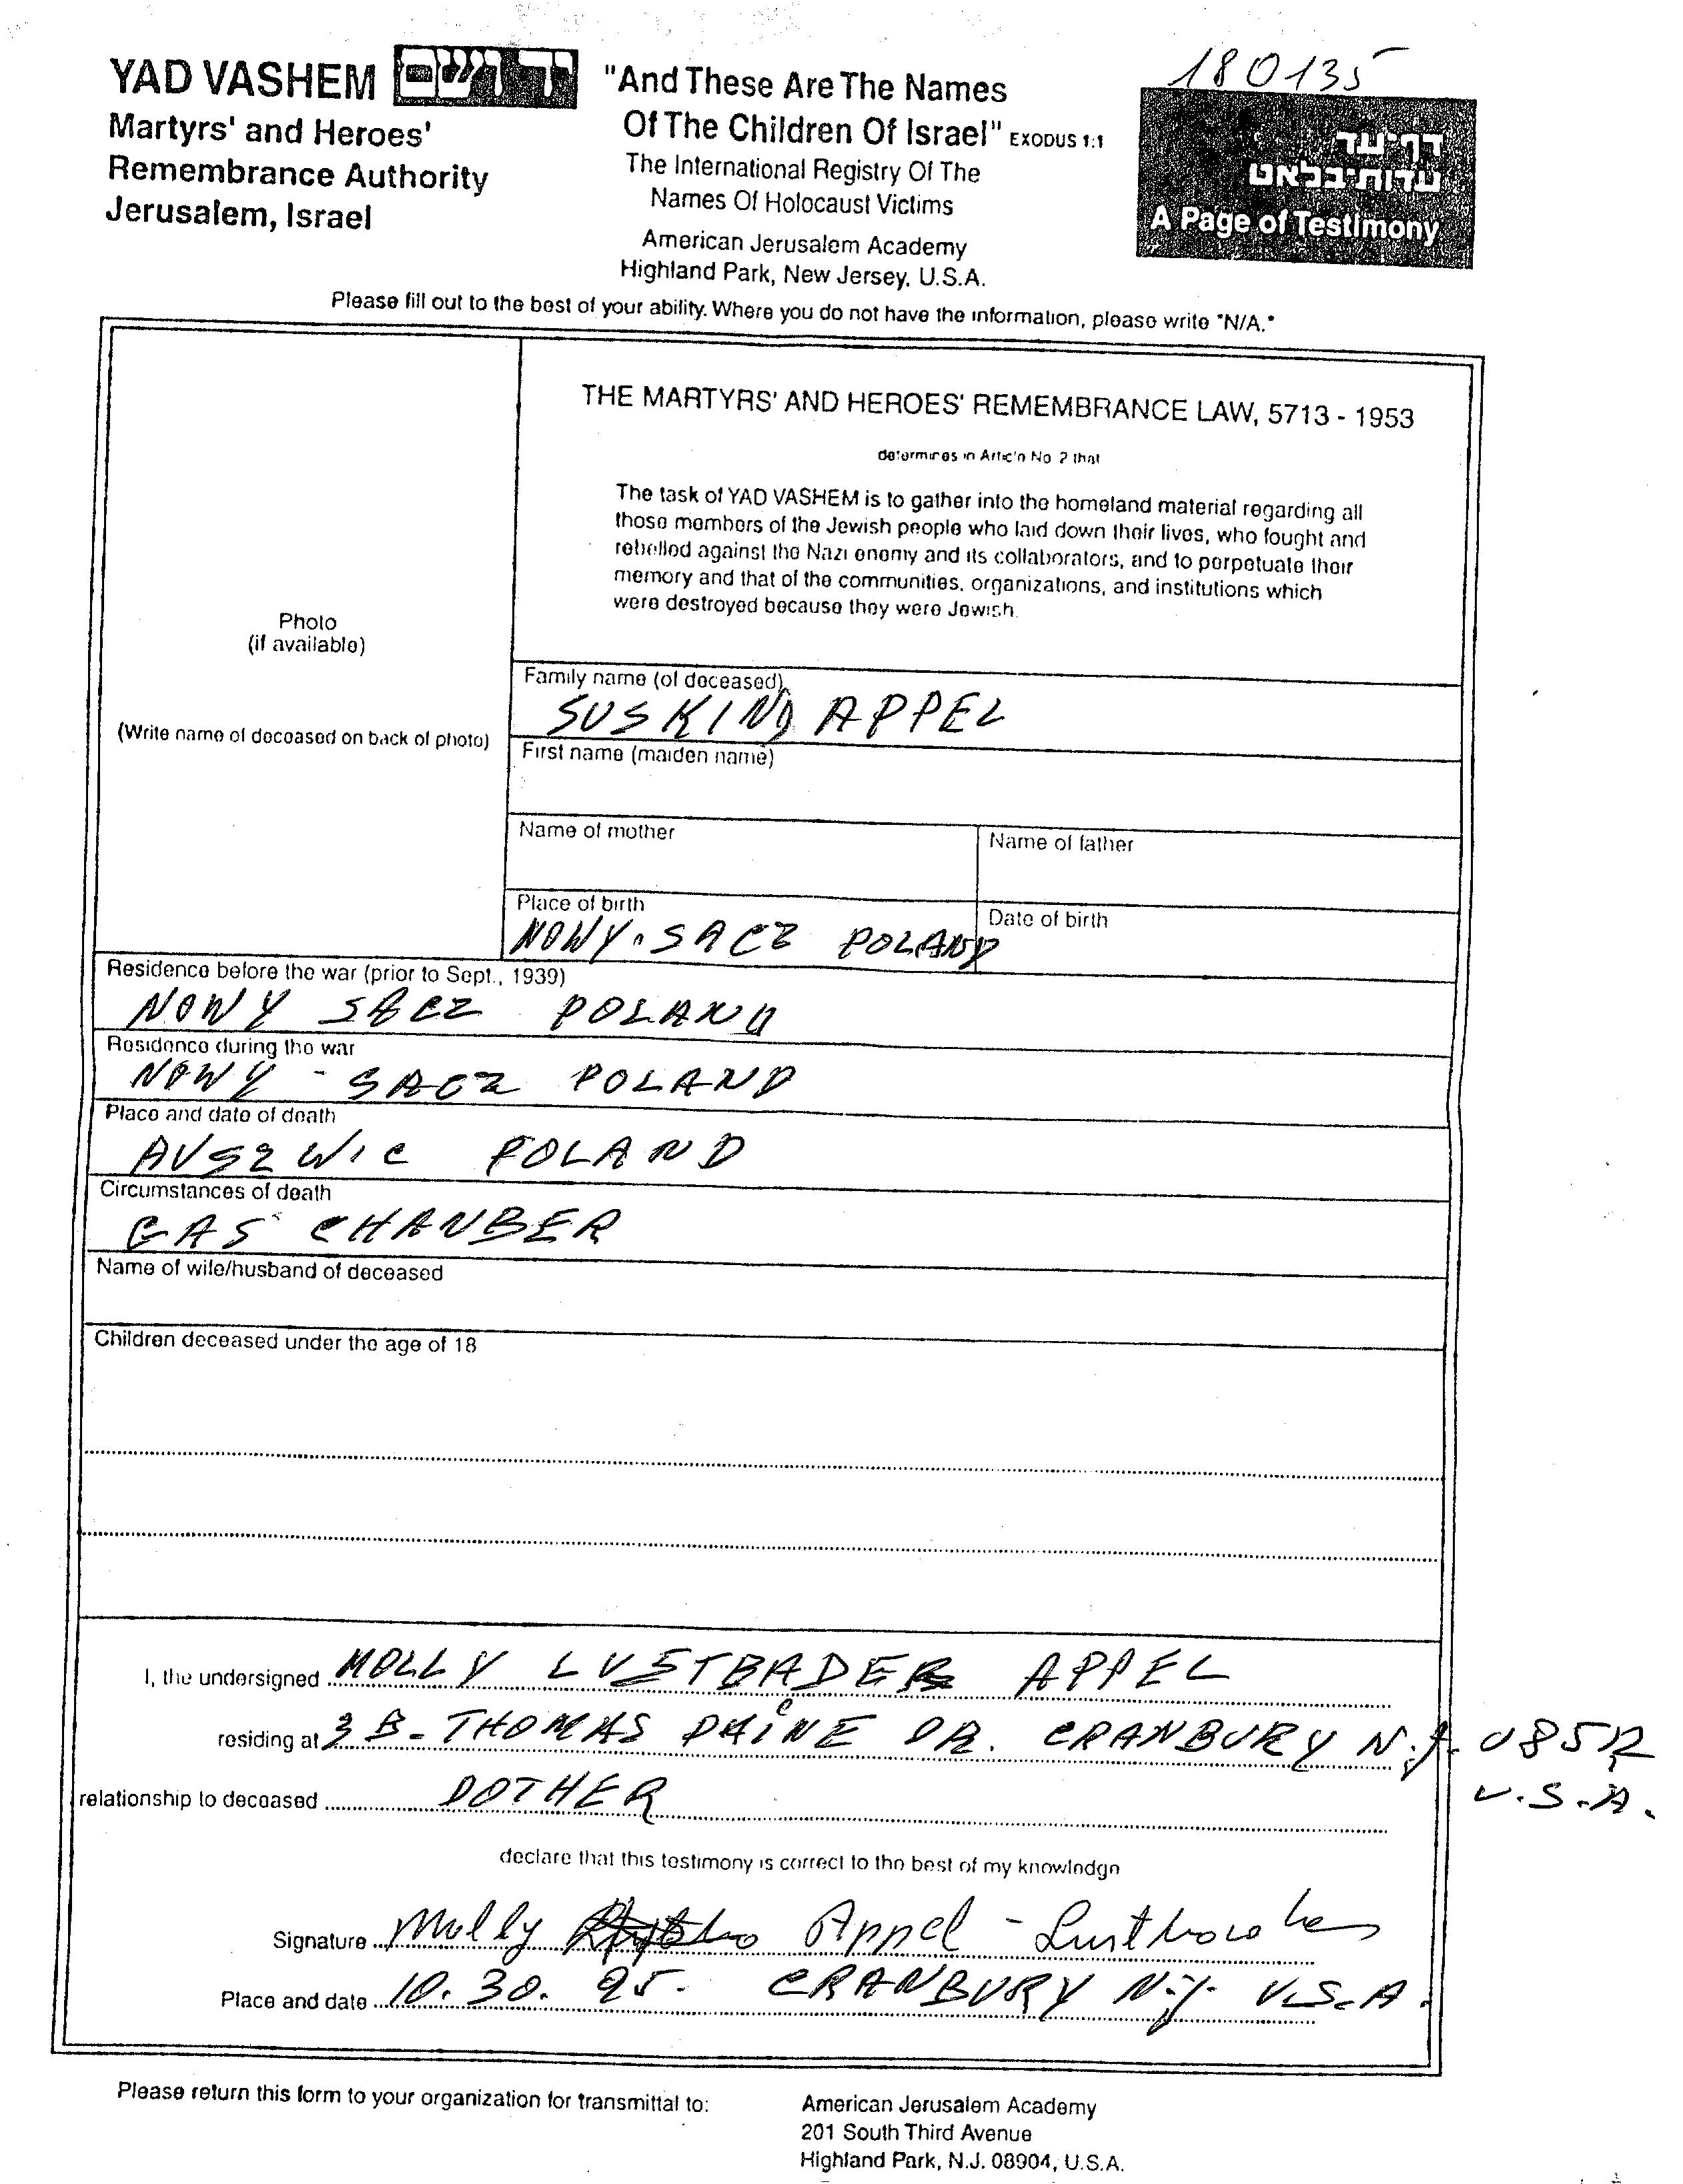 180135
YAD VASHEM יד ושם
Martyrs' and Heroes'
Remembrance Authority
Jerusalem, Israel
"And These Are The Names
Of The Children Of Israel" EXODUS 1:1
The International Registry Of The
Names Of Holocaust Victims
American Jerusalem Academy
Highland Park, New Jersey, U.S.A.
דף־עד
עדות־בלאט
A Page of Testimony
Please fill out to the best of your ability. Where you do not have the information, please write "N/A."
Photo
(if available)
(Write name of deceased on back of photo)
THE MARTYRS' AND HEROES' REMEMBRANCE LAW, 5713 - 1953
determines in Article No. 2 that
The task of YAD VASHEM is to gather into the homeland material regarding all
those members of the Jewish people who laid down their lives, who fought and
rebelled against the Nazi enemy and its collaborators, and to perpetuate their
memory and that of the communities, organizations, and institutions which
were destroyed because they were Jewish.
Family name (of deceased)
SUSKIND APPEL
First name (maiden name)
Name of mother
Name of father
Place of birth
NOWY. SACZ POLAND
Date of birth
Residence before the war (prior to Sept., 1939)
NOWY SACZ POLAND
Residence during the war
NOWY - SACZ POLAND
Place and date of death
AUSZWIC POLAND
Circumstances of death
GAS CHANBER
Name of wife/husband of deceased
Children deceased under the age of 18
I, the undersigned MOLLY LUSTBADER APPEL
residing at 3 B- THOMAS PAINE DR. CRANBURY N.J. 08512
U.S.A.
relationship to deceased DOTHER
declare that this testimony is correct to the best of my knowledge
Signature Molly Appel - Lustbader
Place and date 10.30.95. CRANBURY N.J. U.S.A.
Please return this form to your organization for transmittal to:
American Jerusalem Academy
201 South Third Avenue
Highland Park, N.J. 08904, U.S.A.